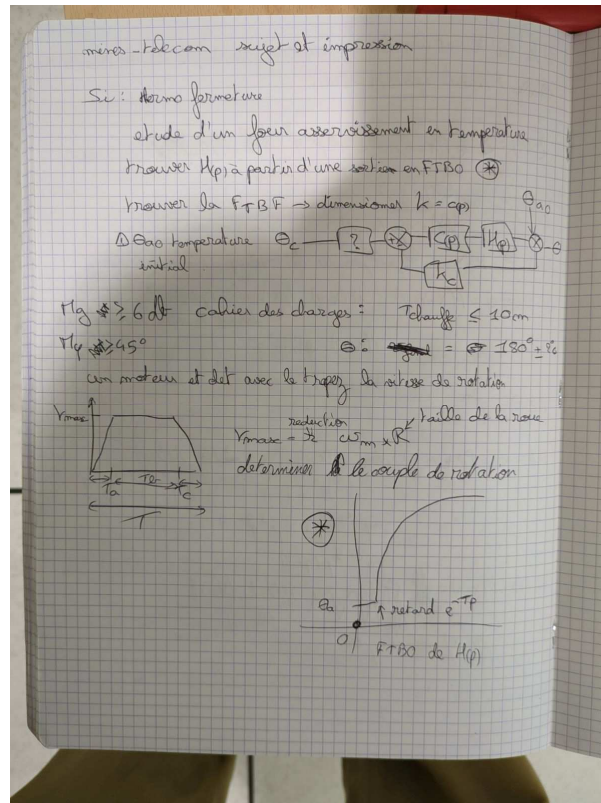 mines-télécom sujet et impression
Si: thermo fermeture
etude d'un four asservissement en température
trouver H(p) à partir d'une sortie en FTBO *
trouver la FTBF → dimensionner k = c(p)
θa0
⚠ θa0 température
initial
θc ? +X C(p) H(p) X θ
kc
Mg ≥ 6 db cahier des charges : Tchauffe ≤ 10 cm
Mφ ≥ 45° θ : = 180° ±
un moteur et det avec le trapez la vitesse de rotation
Vmax
reduction
taille de la roue
Vmax = r ωm x R
determiner le couple de rotation
Ta Tc
T
*
θa
↑ retard e^-Tp
0
FTBO de H(p)